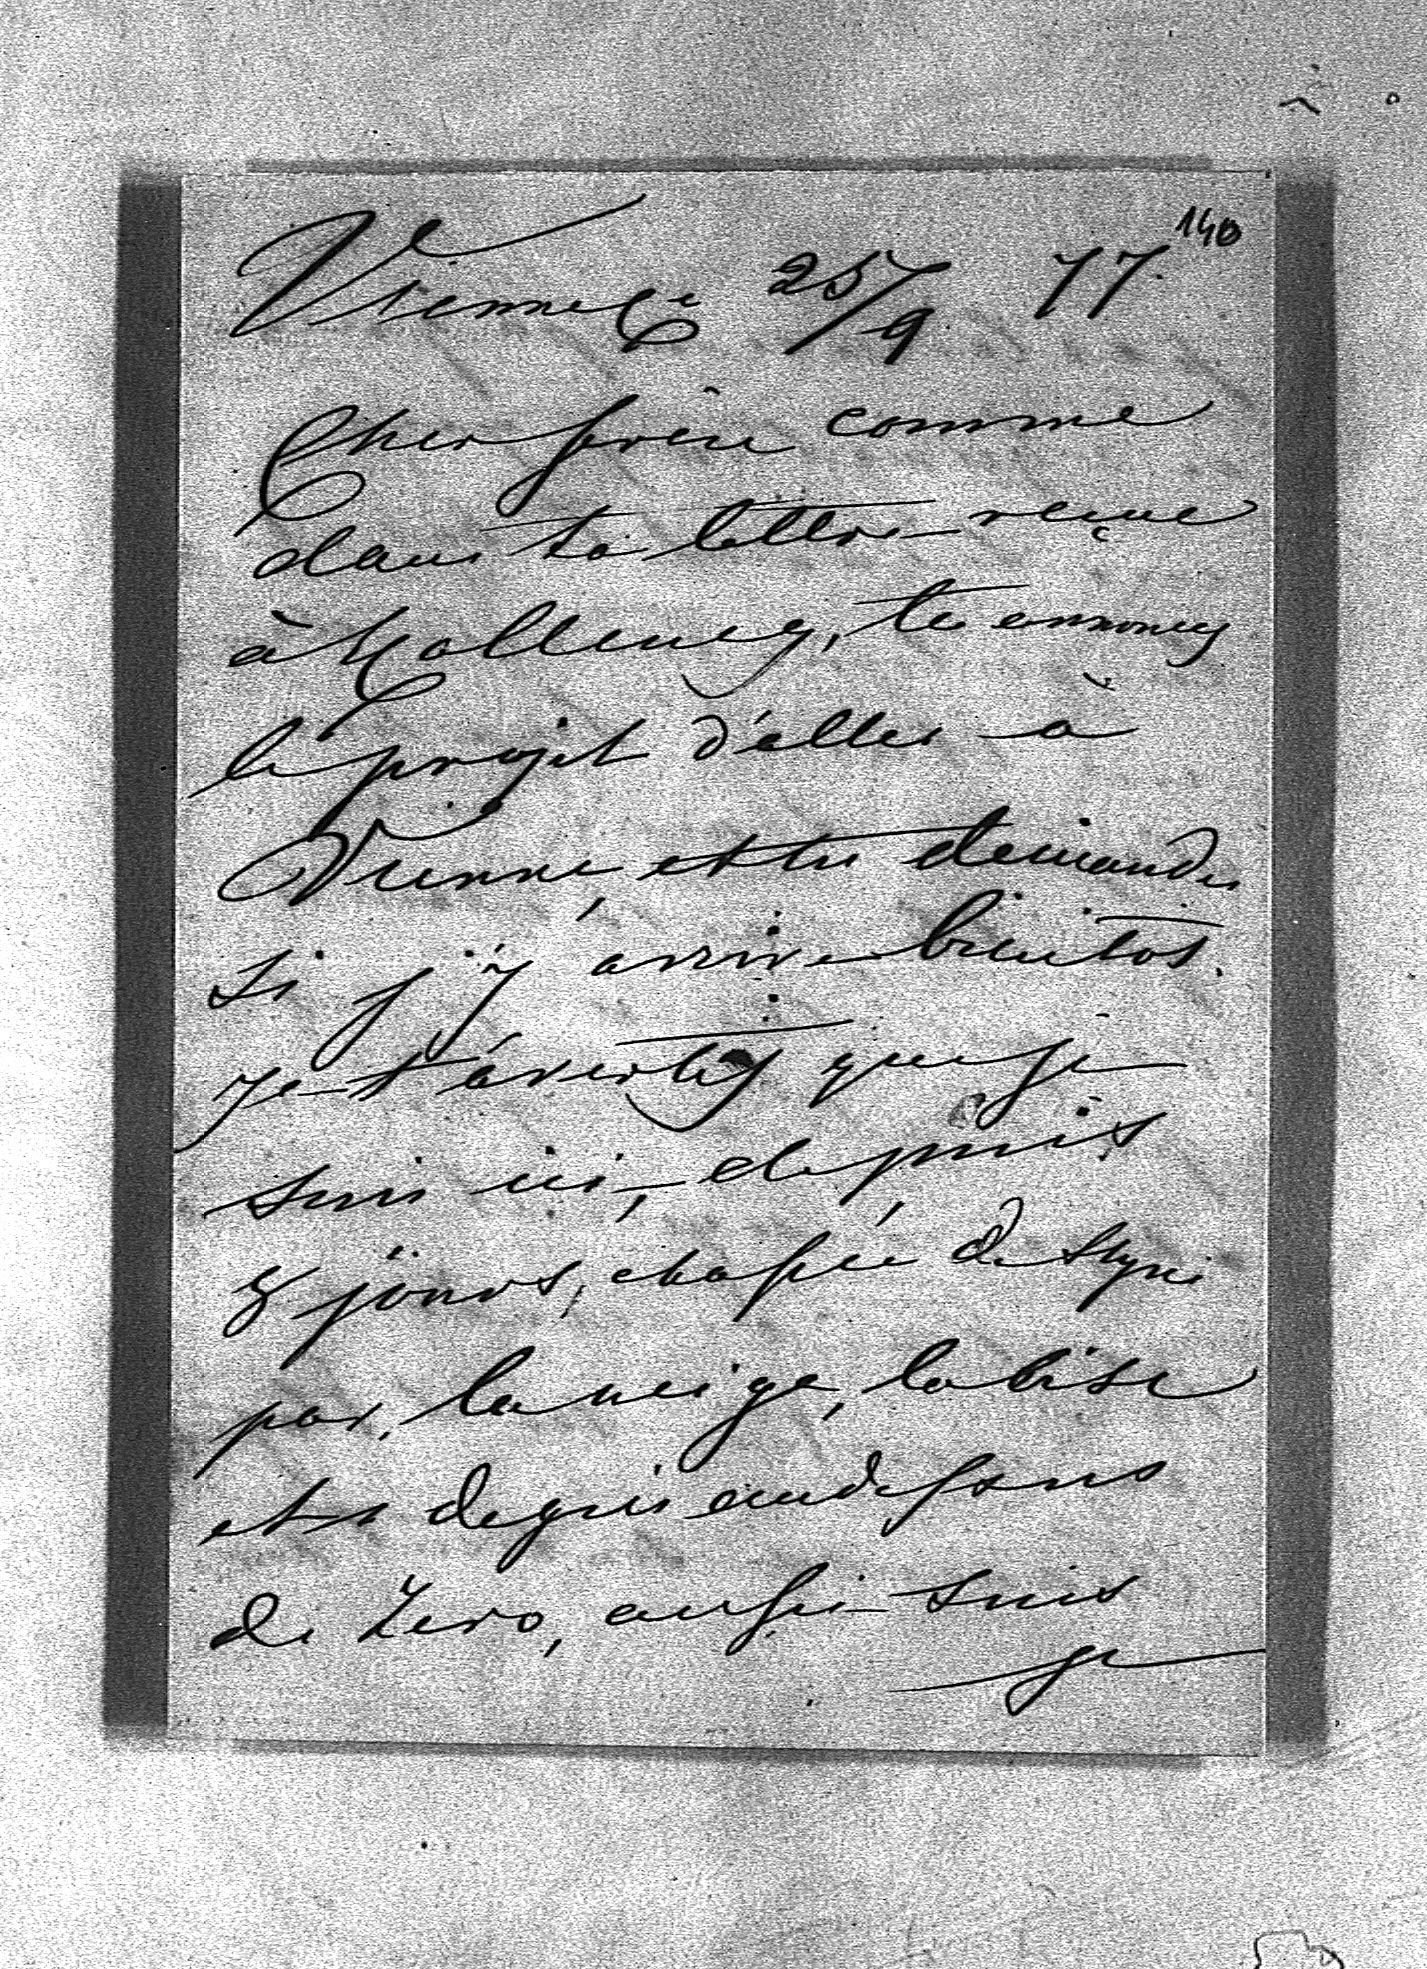 140
Vienne le 25/9 77.
Cher frère comme
dans ta lettre reçue
à, tu annonces
le projet d'aller à
Vienne, et tu demandes
si j'y arrive bientôt.
Je t'avertis que je
suis ici, depuis
8 jours, chassée de Styrie
par la neige, la bise
et degrés audessous
de Zero, aussi suis
je